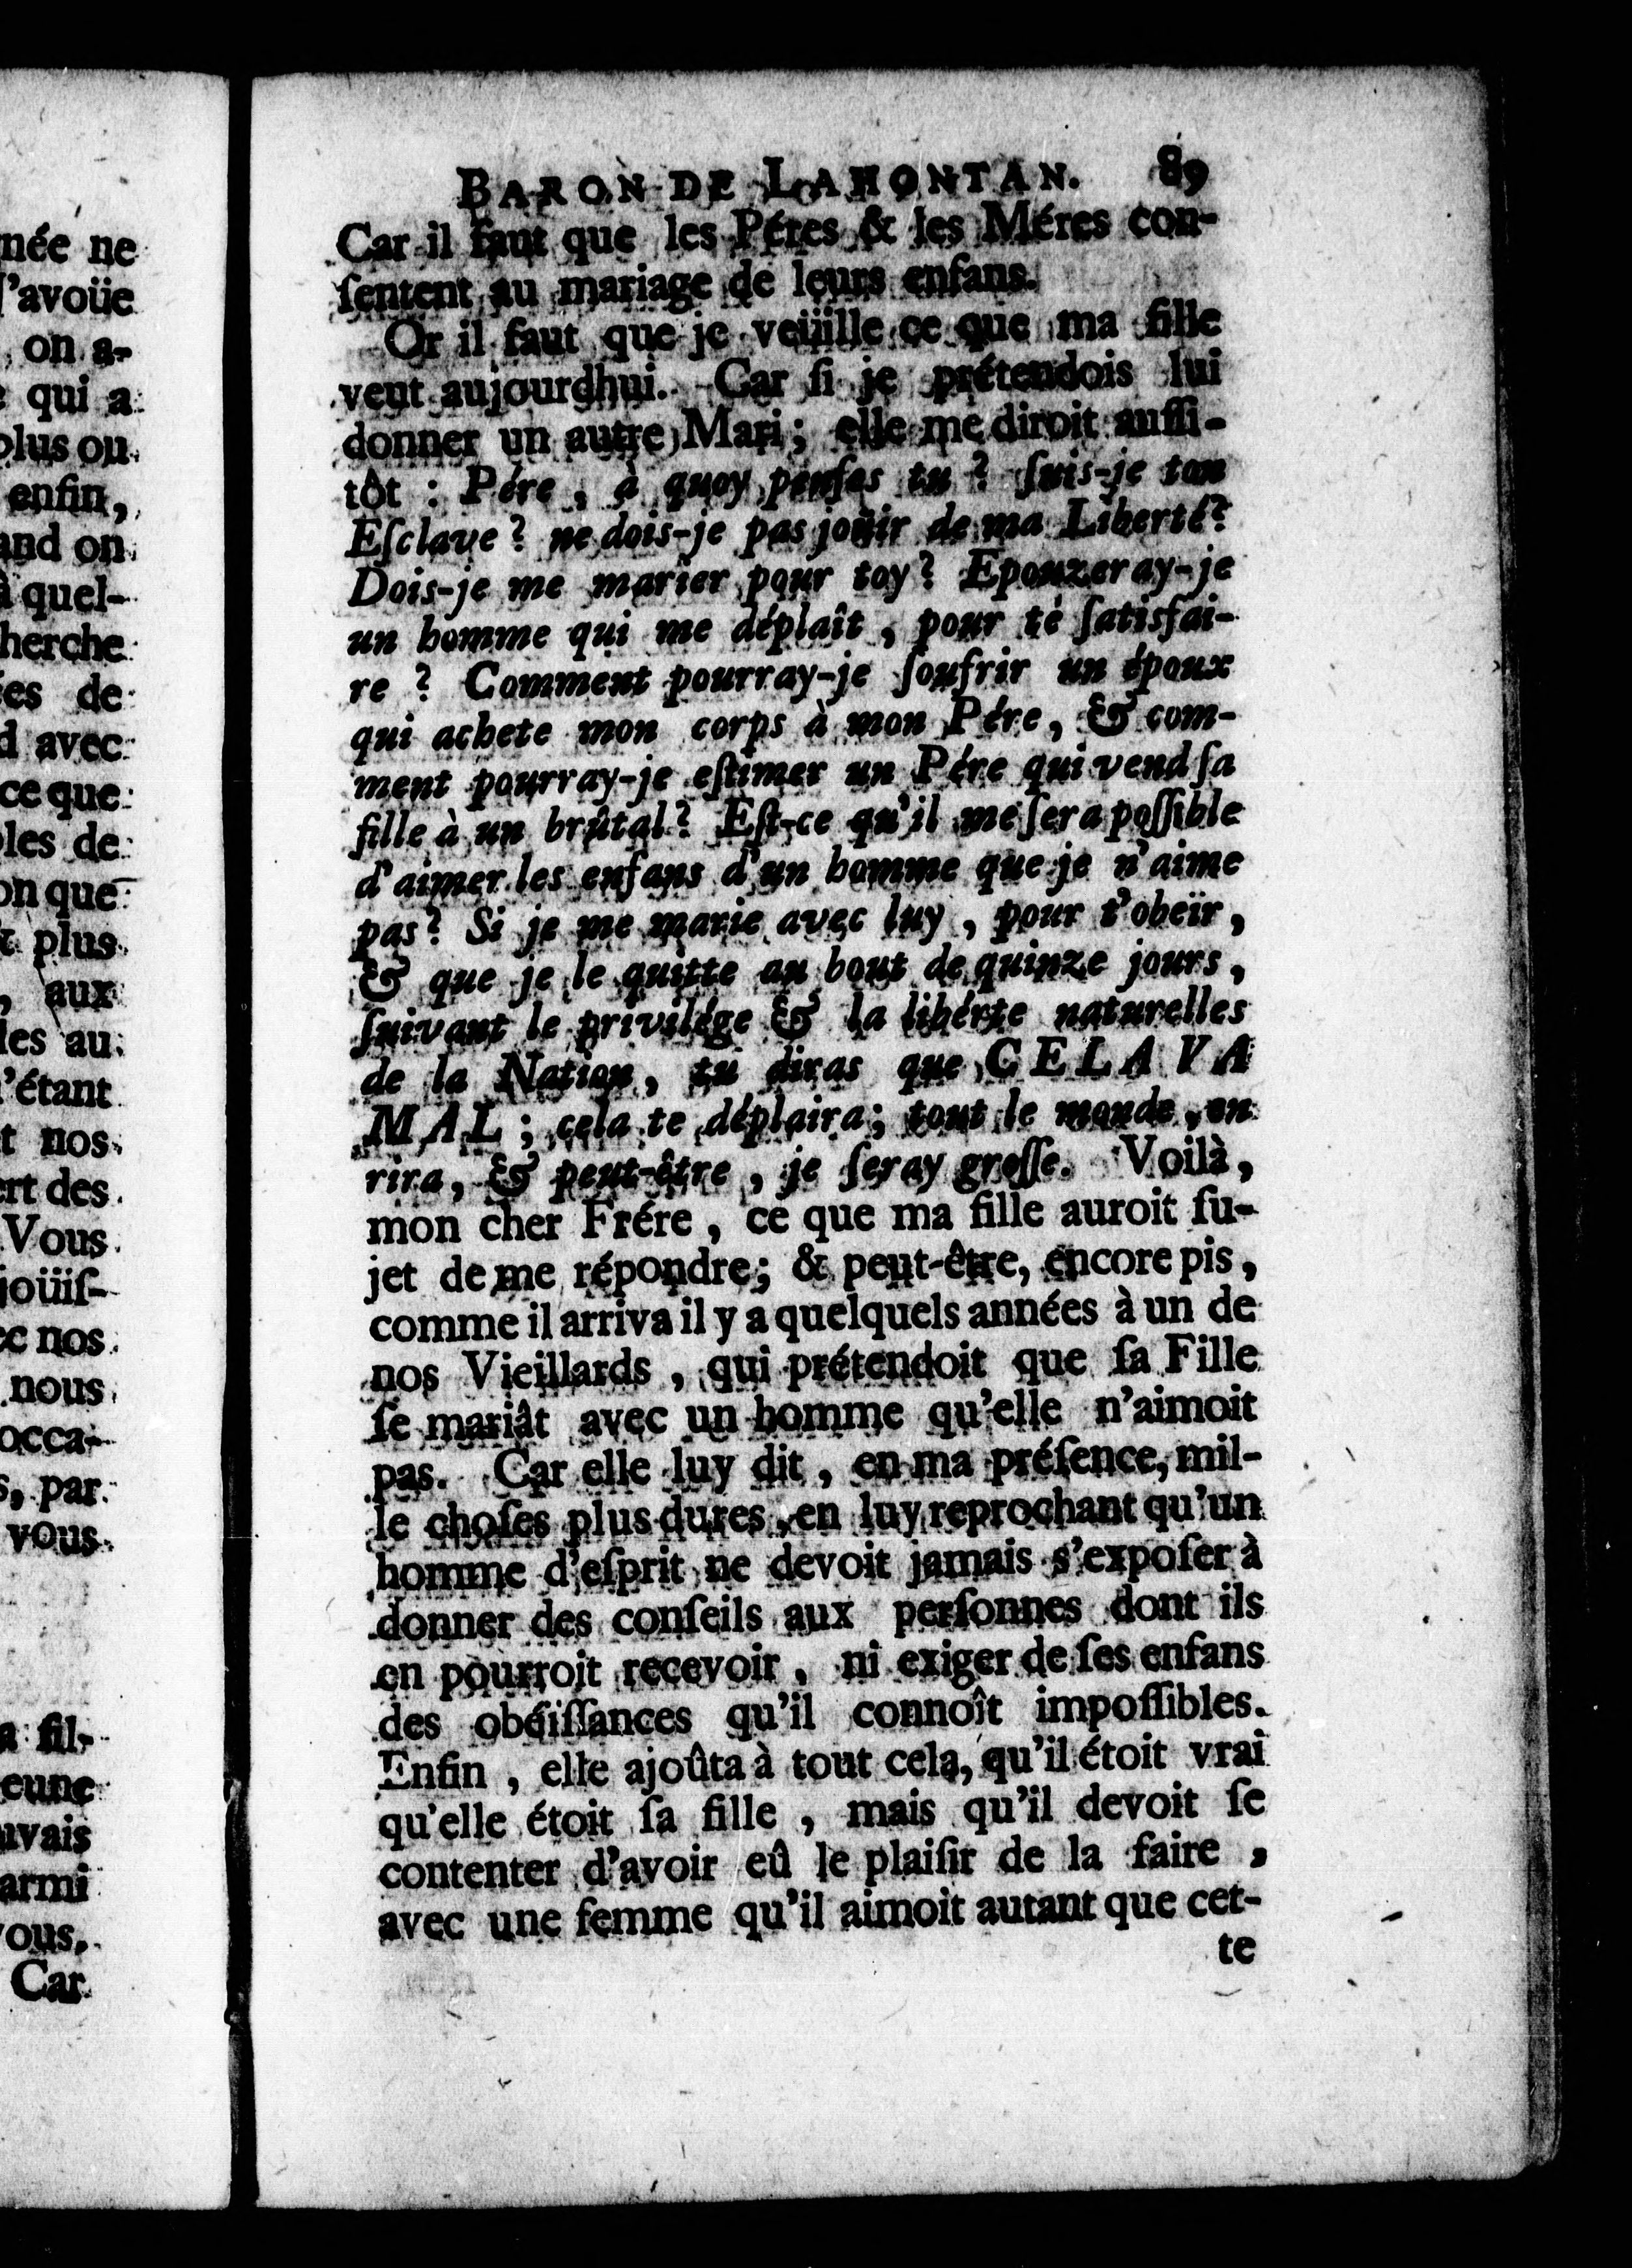 née ne
l'avoüe
on a-
qui a
plus ou
enfin,
and on
à quel-
herche
es de
d avec
ce que
les de
on que
& plus
, aux
les au
l'étant
t nos
rt des
Vous
joüiſ-
c nos
nous
occa-
s, par
vous
a fil-
eune
uvais
armi
vous,
Car
BARON DE LAHONTAN. 89
Car il faut que les Péres & les Méres con-
ſentent au mariage de leurs enfans.
Or il faut que je veüille ce que ma fille
veut aujourdhui. Car ſi je prétendois lui
donner un autre Mari; elle me diroit auſſi-
tôt : Pére, à quoy penſes tu ? ſuis-je ton
Eſclave ? ne dois-je pas joüir de ma Liberté?
Dois-je me marier pour toy? Epouzeray-je
un homme qui me déplaît, pour te ſatisfai-
re ? Comment pourray-je ſoufrir un époux
qui achete mon corps à mon Pére, & com-
ment pourray-je eſtimer un Pére qui vend ſa
fille à un brûtal? Eſt-ce qu'il me ſera poſſible
d'aimer les enfans d'un homme que je n'aime
pas? Si je me marie avec luy, pour t'obeïr,
& que je le quitte au bout de quinze jours,
ſuivant le privilége & la libérte naturelles
de la Nation, tu diras que CELA VA
MAL; cela te déplaira; tout le monde, en
rira, & peut-être, je ſeray groſſe. Voilà,
mon cher Frére, ce que ma fille auroit ſu-
jet de me répondre; & peut-être, encore pis,
comme il arriva il y a quelquels années à un de
nos Vieillards, qui prétendoit que ſa Fille
ſe mariât avec un homme qu'elle n'aimoit
pas. Car elle luy dit, en ma préſence, mil-
le choſes plus dures, en luy reprochant qu'un
homme d'eſprit ne devoit jamais s'expoſer à
donner des conſeils aux perſonnes dont ils
en pourroit recevoir, ni exiger de ſes enfans
des obéiſſances qu'il connoît impoſſibles.
Enfin, elle ajoûta à tout cela, qu'il étoit vrai
qu'elle étoit ſa fille, mais qu'il devoit ſe
contenter d'avoir eû le plaiſir de la faire,
avec une femme qu'il aimoit autant que cet-
te